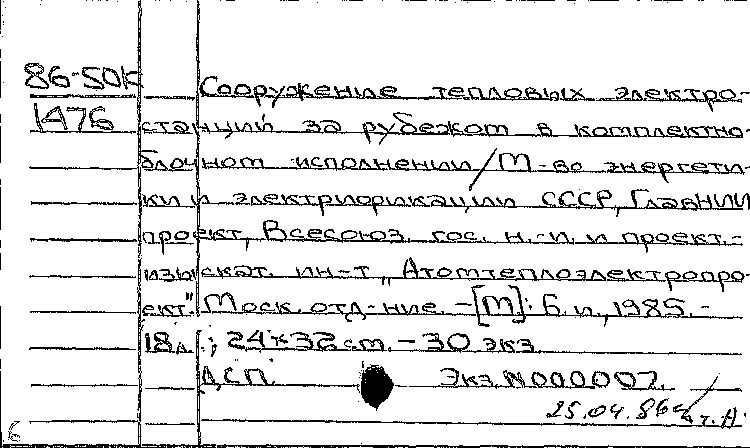 86-50К
1476
Сооружение тепловых электро-
станций за рубежом в комплектно-
блочном исполнении / М-во энергети-
ки и электрификации СССР, ГлавНИИ
проект, Всесоюз. гос. н.-и. и проект.-
изыскат. ин-т „Атомтеплоэлектропро-
ект". Моск. отд-ние. - [М]: Б. и., 1985. -
18 л.; 24×32 см. - 30 экз.
ДСП. Экз. №000007.
25.04.86г.